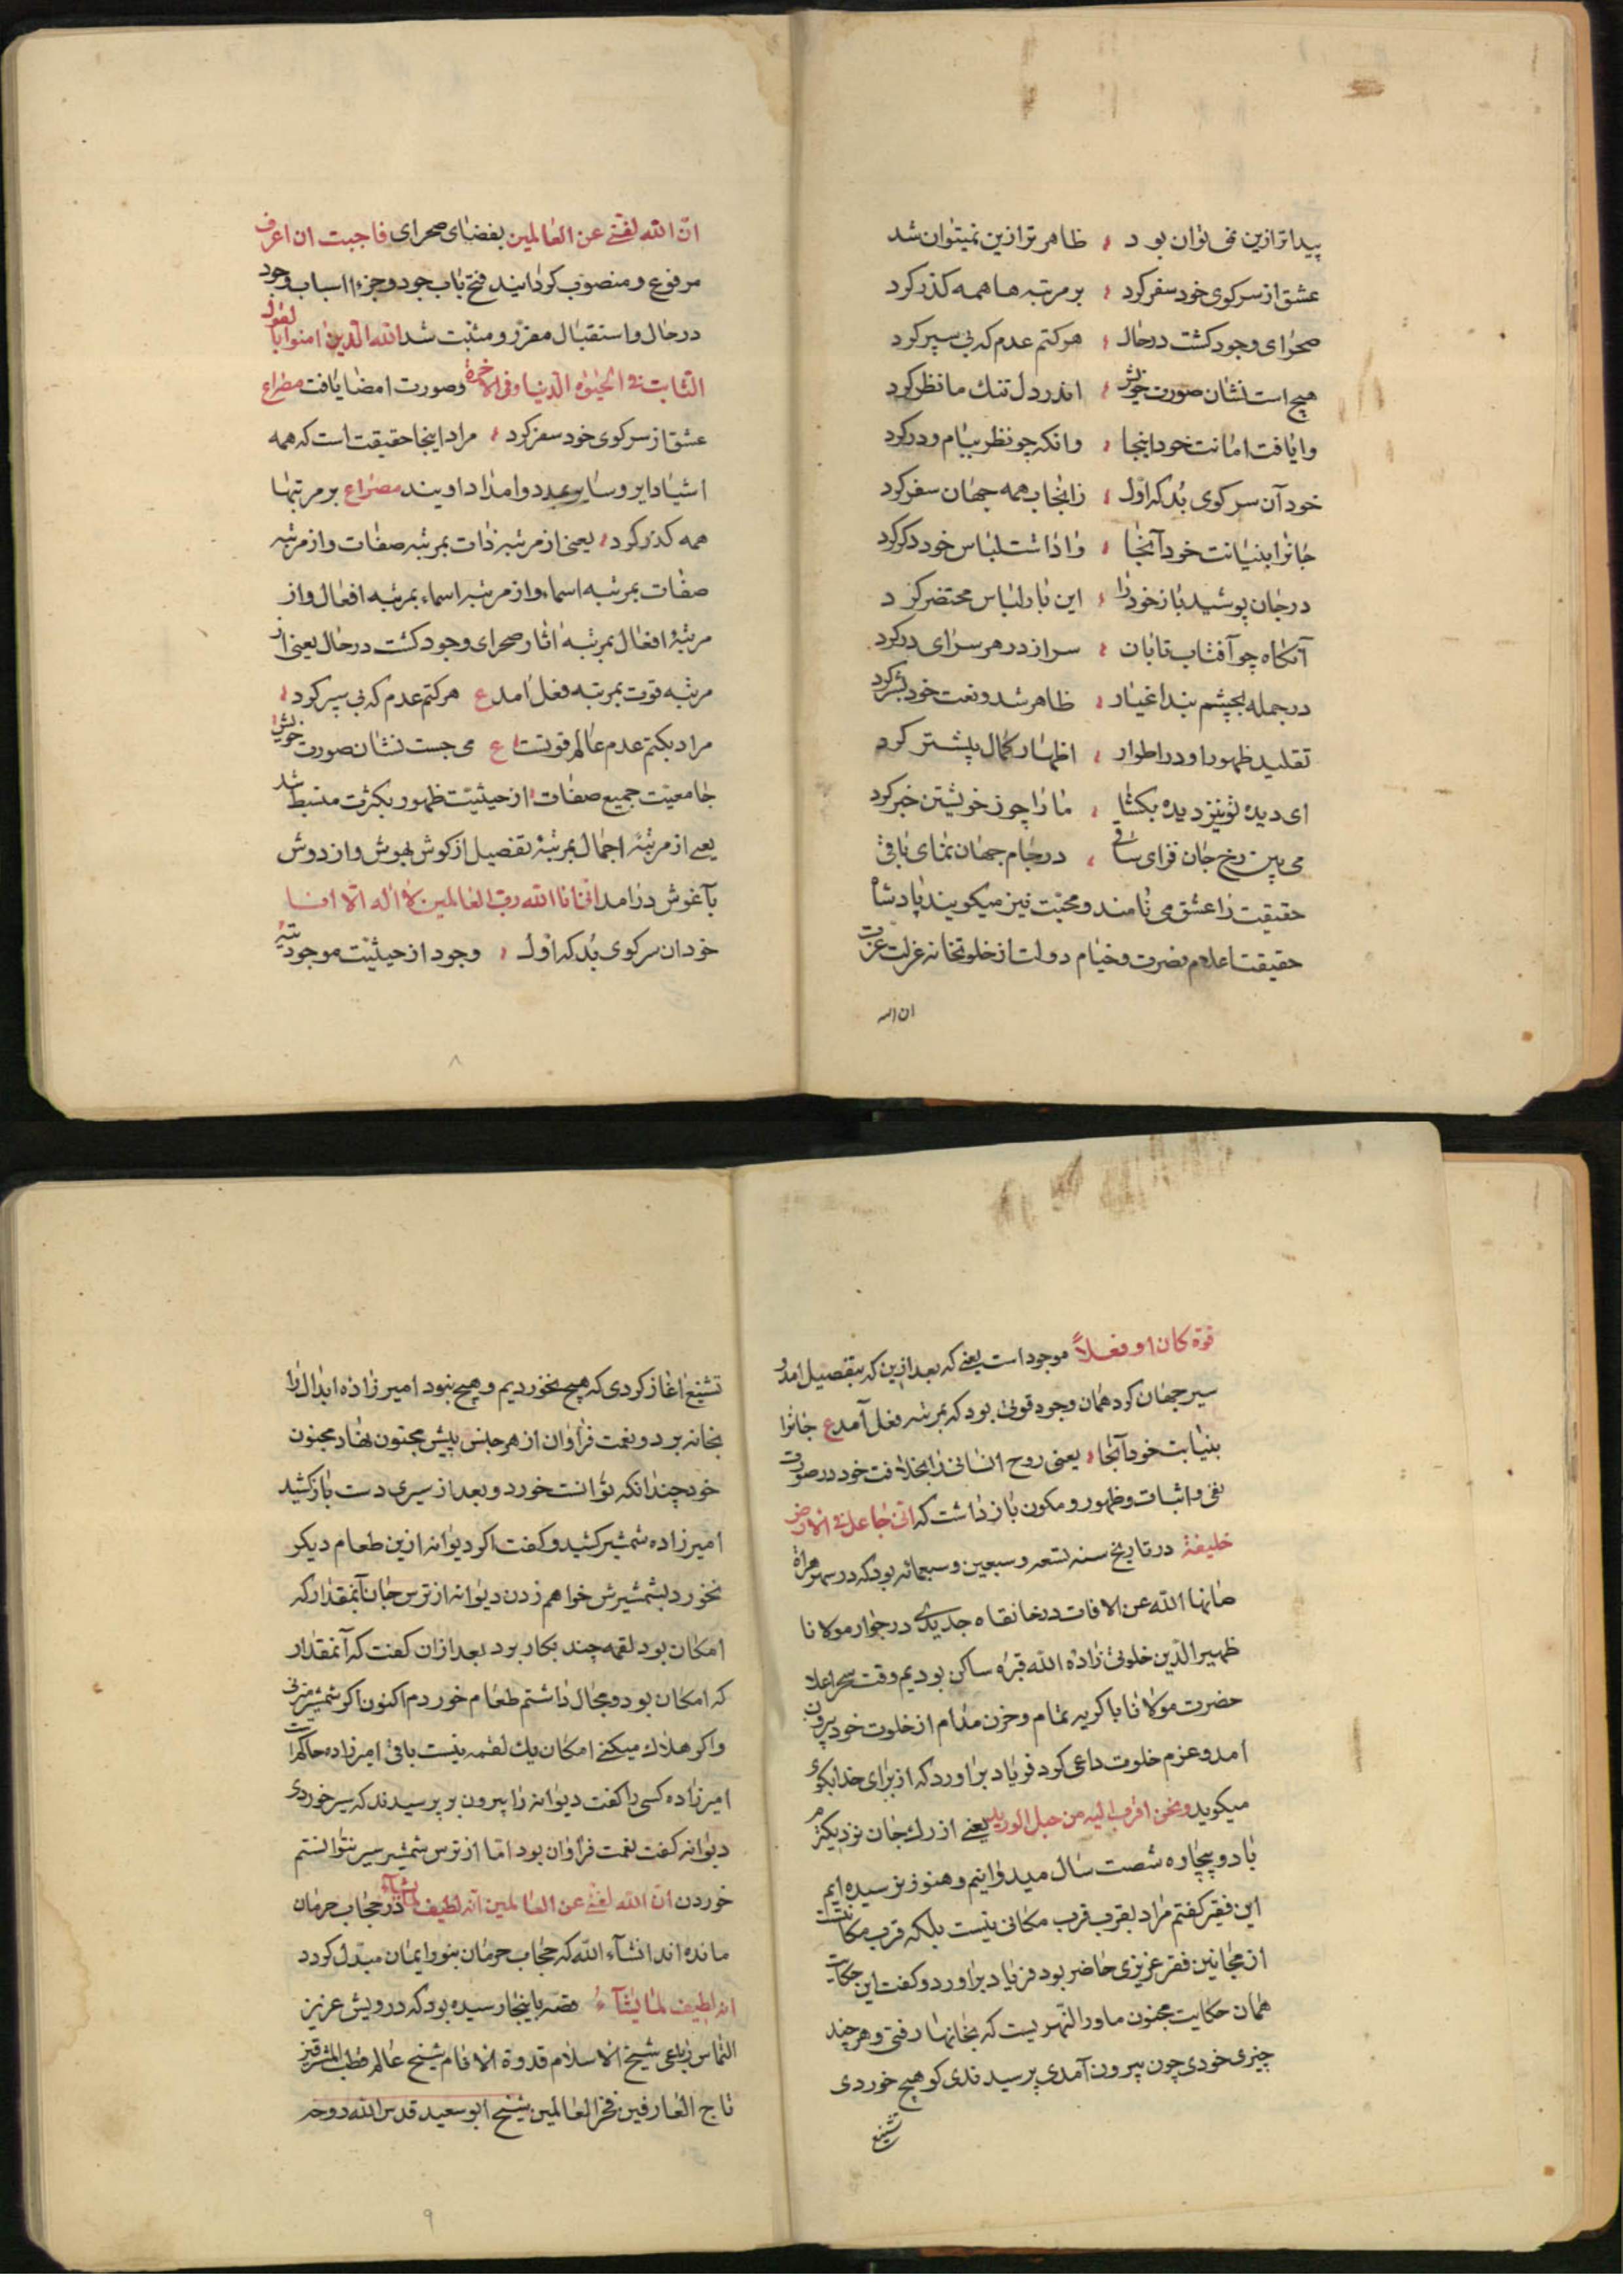 پیداتر ازین نمی توان بود ، ظاهرتر ازین نمیتوان شد
عشق از سر کوی خود سفر کرد ، بر مرتبه ها همه کذر کرد
صحرای وجود کشت در حال ، هر کتم عدم که پی سپر کرد
هیچ است نشان صورت خویش ، اندر دل تنك ما نظر کرد
وایافت امانت خود اینجا ، وانکه چو نظر ببام و در کرد
خود آن سر کوی بُد که اول ، زانجا بهمه جهان سفر کرد
جانرا بنیابت خود آنجا ، واداشت لباس خود دکر کرد
در جان پوشید باز خود را ، این بار لباس مختصر کرد
آنکاه چو آفتاب تابان ، سر از در هر سرای در کرد
در جمله بچشم بند اغیار ، ظاهر شد و نعت خود بشر کرد
تقلید ظهور او در اطوار ، اظهار کمال پیشتر کرد
ای دیده تو نیز دیده بکشا ، ما را چو ز خویشتن خبر کرد
می بین رخ جان فزای ساقی ، در جام جهان نمای باقی
حقیقت را عشق می نامند و محبت نیز میکویند پادشاه
حقیقت اعلام نصرت و خیام دولت از خلوتخانه عزلت عزت
ان الله
انّ الله لغنی عن العالمین بفضای صحرای فاحببت ان اعرف
مرفوع و منصوب کردانید فتح باب جود و جزء اسباب وجود
در حال و استقبال مقرر و مثبت شد الله الّذین امنوا بالقول
الثابت فی الحیوة الدنیا و فی الاخرة و صورت امضا یافت مصراع
عشق از سر کوی خود سفر کرد ، مراد اینجا حقیقت است که همه
اشیا دایر و سایر بمدد و امداد اویند مصراع بر مرتبها
همه کذر کرد ، یعنی از مرتبه ذات بمرتبه صفات و از مرتبه
صفات بمرتبه اسماء و از مرتبه اسماء بمرتبه افعال و از
مرتبهٔ افعال بمرتبه اثار صحرای وجود کشت در حال یعنی از
مرتبه قوت بمرتبه فعل امد ع هر کتم عدم که پی سپر کرد ،
مراد بکتم عدم عالم قوتست ع می جست نشان صورت خویش ،
جامعیت جمیع صفات از حیثیت ظهور بکثرت منبسط شد
یعنی از مرتبهٔ اجمال بمرتبهٔ تفصیل از کوش بهوش و از دوش
بآغوش درامد انی انا الله رب العالمین لا اله الا انا
خود ان سر کوی بُد که اول ، وجود از حیثیت موجودیته
۸
قوة کان او فعلاً موجود است یعنی که بعد ازین که بتفصیل امد و
سیر جهان کرد همان وجود قوتی بود که بمرتبه فعل آمد ع جانرا
بنیابت خود آنجا ، یعنی روح انسانی را بخلافت خود در صورت
نفی و اثبات و ظهور و مکون بازداشت که انی جاعل فی الارض
خلیفة در تاریخ سنه تسعه و سبعین و سبعمائه بود که در سهر هراة
صانها الله عن الافات در خانقاه جدیدی در جوار مولانا
ظهیر الدین خلوتی زاده الله قبره ساکن بودیم وقت سحر اعلا
حضرت مولانا با کریه تمام و حزن مدام از خلوت خود بیرون
امد و عزم خلوت داعی کرد فریاد براورد که از برای خدا بکوی
میکوید و نحن اقرب الیه من حبل الورید یعنی از رك جان نزدیکترم
با دو بیچاره شصت سال میدوانیم و هنوز نرسیده ایم
این فقیر کفتم مراد بقرب قرب مکانی نیست بلکه قرب مکانتست
از مجانین فقر عزیزی حاضر بود فریاد براورد و کفت این حکایت
همان حکایت مجنون ماورا النهریست که بخانها رفتی و هر چند
چیزی خوردی چون بیرون آمدی پرسیدندی کو هیچ خوردی
تشنیع
تشنیع اغاز کردی که هیچ نخوردیم و هیچ نبود امیر زاده ابدال را
بخانه برد و نعمت فراوان از هر جنس پیش مجنون نهاد مجنون
خود چندانکه توانست خورد و بعد از سیری دست بازکشید
امیر زاده شمشیر کشید و کفت اکر دیوانه ازین طعام دیکر
نخورد بشمشیرش خواهم زدن دیوانه از ترس جان آنمقدار که
امکان بود لقمه چند بکار برد بعد از ان کفت که آنمقدار
که امکان بود و مجال داشتم طعام خوردم اکنون اکر شمشیر میزنی
و اکر هلاك میکنی امکان یك لقمه نیست باقی امیر زاده حاکم است
امیر زاده کسی را کفت دیوانه را بیرون بر پرسیدند که سیر خوردی
دیوانه کفت نعمت فراوان بود اما از ترس شمشیر سیر نتوانستم
خوردن ان الله لغنی عن العالمین انه لطیف لما یشاء در حجاب حرمان
مانده اند انشآء الله که حجاب حرمان بنور ایمان مبدل کردد
انه لطیف لما یشآء قصه باینجا رسیده بود که درویش عزیز
التماس رباعی شیخ الاسلام قدوة الانام شیخ عالم قطب المشرقین
تاج العارفین فخر العالمین شیخ ابو سعید قدس الله روحه
۹